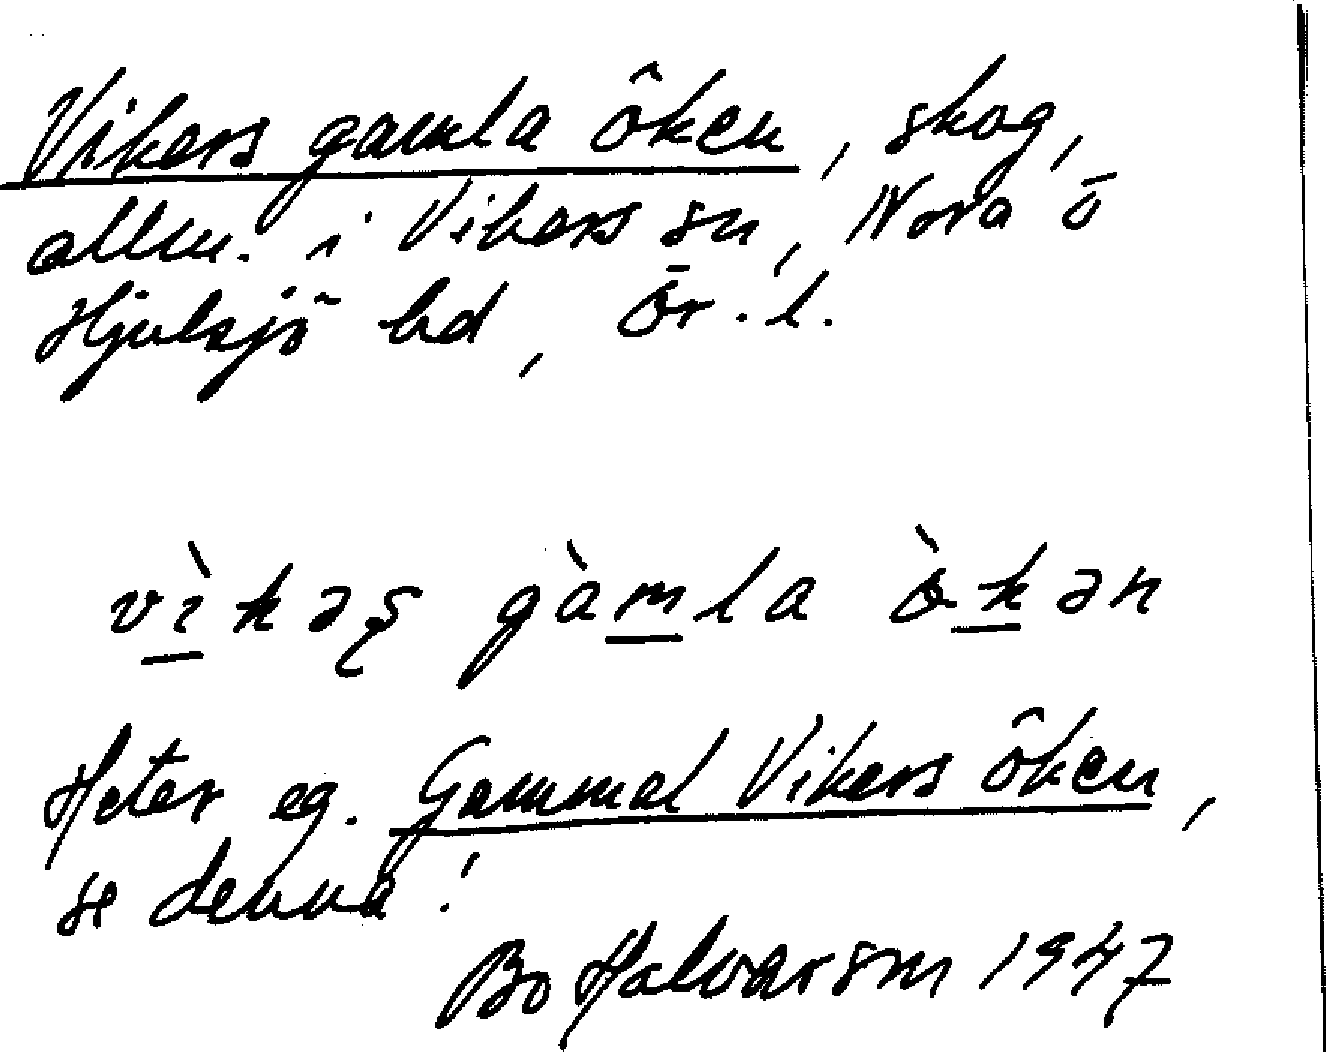 Vikers gamla ôken, skog,
allm. i Vikers sn, Nora o
Hjulsjö bd, Ör. l.
vìkəʂ gàmla òkən
Heter eg. Gammal Vikers ôken,
se denna!
Bo Halvarson 1947